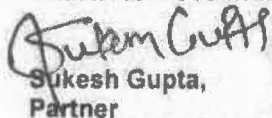 Sukesh Gupta
Sukesh Gupta,
Partner